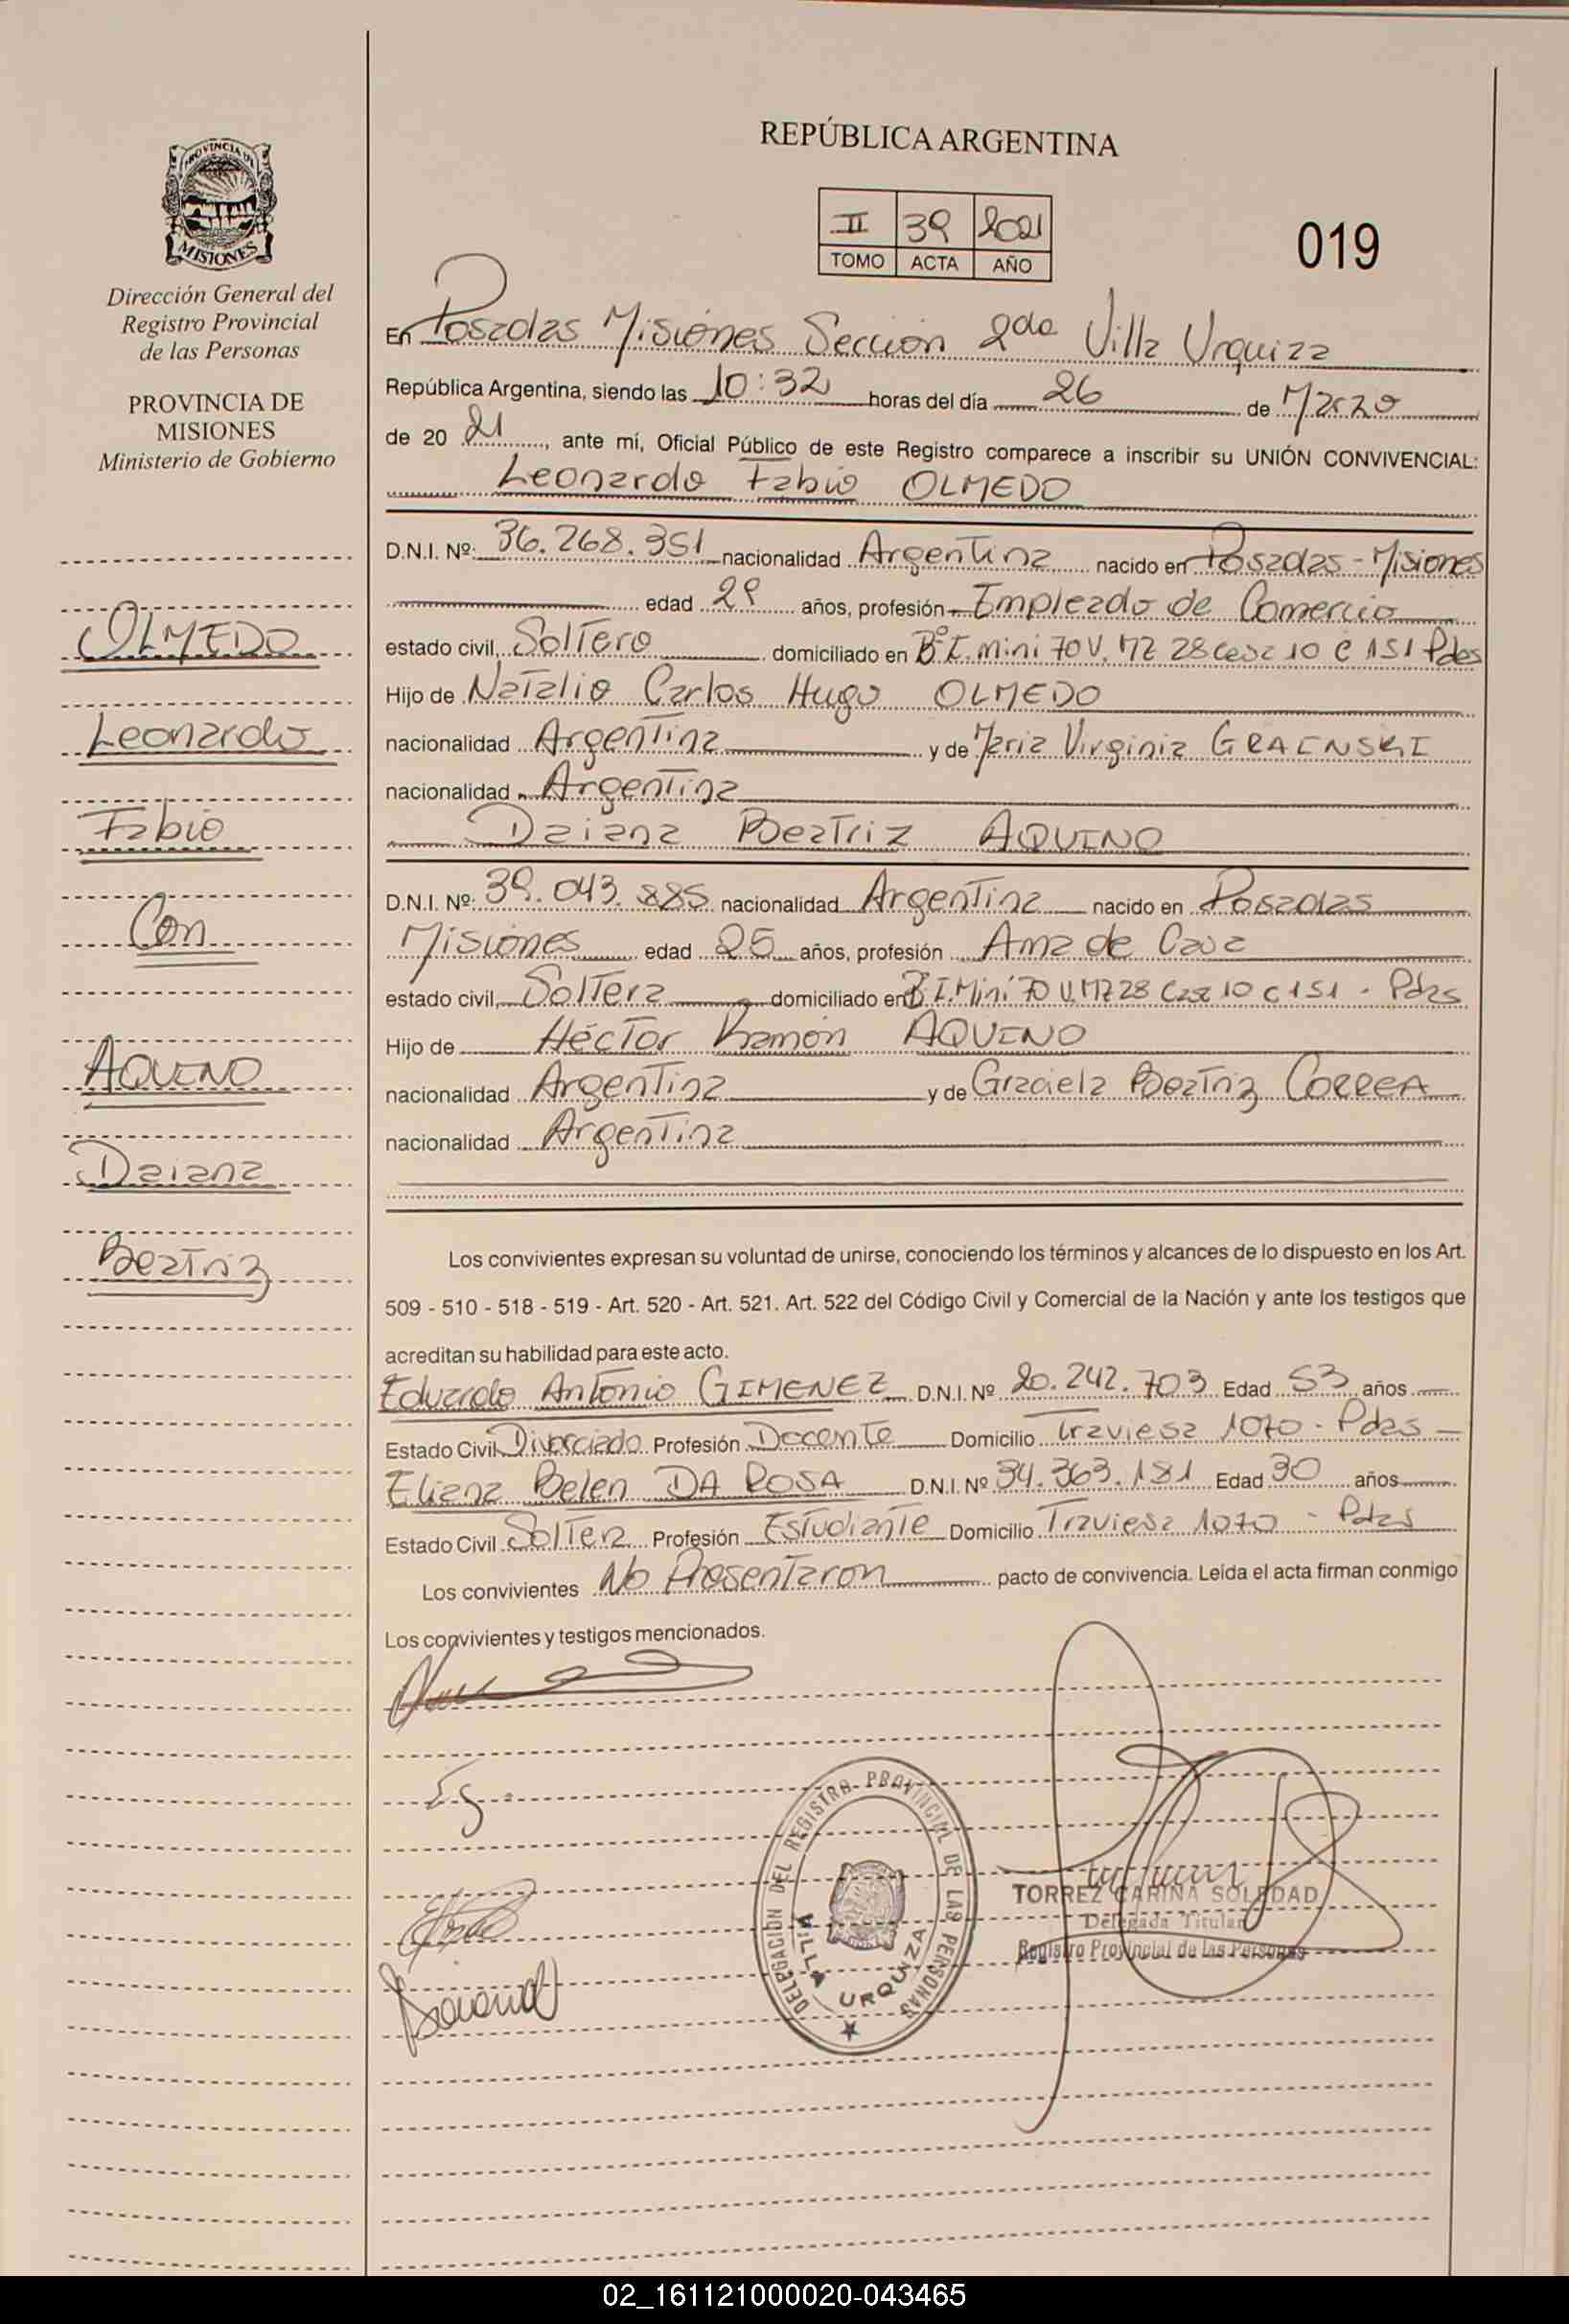 PROVINCIA DE
MISIONES
Dirección General del
Registro Provincial
de las Personas
PROVINCIA DE
MISIONES
Ministerio de Gobierno
OLMEDO
Leonardo
Fabio
Con
AQUINO
Daiana
Beatriz
REPÚBLICA ARGENTINA
II 39 2021
TOMO ACTA AÑO
019
En Posadas Misiones Sección 2da Villa Urquiza
República Argentina, siendo las 10:32 horas del día 26 de Marzo
de 20 21, ante mí, Oficial Público de este Registro comparece a inscribir su UNIÓN CONVIVENCIAL:
Leonardo Fabio OLMEDO
D.N.I. Nº: 36.268.351 nacionalidad Argentina nacido en Posadas - Misiones
edad 29 años, profesión Empleado de Comercio
estado civil, Soltero domiciliado en Bº I. Mini 70 V. MZ 28 Casa 10 C 151 Pdas
Hijo de Natalio Carlos Hugo OLMEDO
nacionalidad Argentina y de Maria Virginia GRAINSKI
nacionalidad Argentina
Daiana Beatriz AQUINO
D.N.I. Nº: 39.043.885 nacionalidad Argentina nacido en Posadas
Misiones edad 25 años, profesión Ama de Casa
estado civil, Soltera domiciliado en B I. Mini 70 V. MZ 28 Casa 10 C 151 - Pdas
Hijo de Héctor Ramón AQUINO
nacionalidad Argentina y de Graciela Beatriz CORREA
nacionalidad Argentina
Los convivientes expresan su voluntad de unirse, conociendo los términos y alcances de lo dispuesto en los Art.
509 - 510 - 518 - 519 - Art. 520 - Art. 521. Art. 522 del Código Civil y Comercial de la Nación y ante los testigos que
acreditan su habilidad para este acto.
Eduardo Antonio GIMENEZ D.N.I. Nº 20.242.703 Edad 53 años
Estado Civil Divorciado Profesión Docente Domicilio Traviesa 1070 - Pdas
Eliana Belen DA ROSA D.N.I. Nº 34.363.181 Edad 30 años
Estado Civil Soltera Profesión Estudiante Domicilio Traviesa 1070 - Pdas
Los convivientes No Presentaron pacto de convivencia. Leída el acta firman conmigo
Los convivientes y testigos mencionados.
DELEGACION DEL REGISTRO PROVINCIAL DE LAS PERSONAS
VILLA URQUIZA
TORREZ CARINA SOLEDAD
Delegada Titular
Registro Provincial de las Personas
02_161121000020-043465